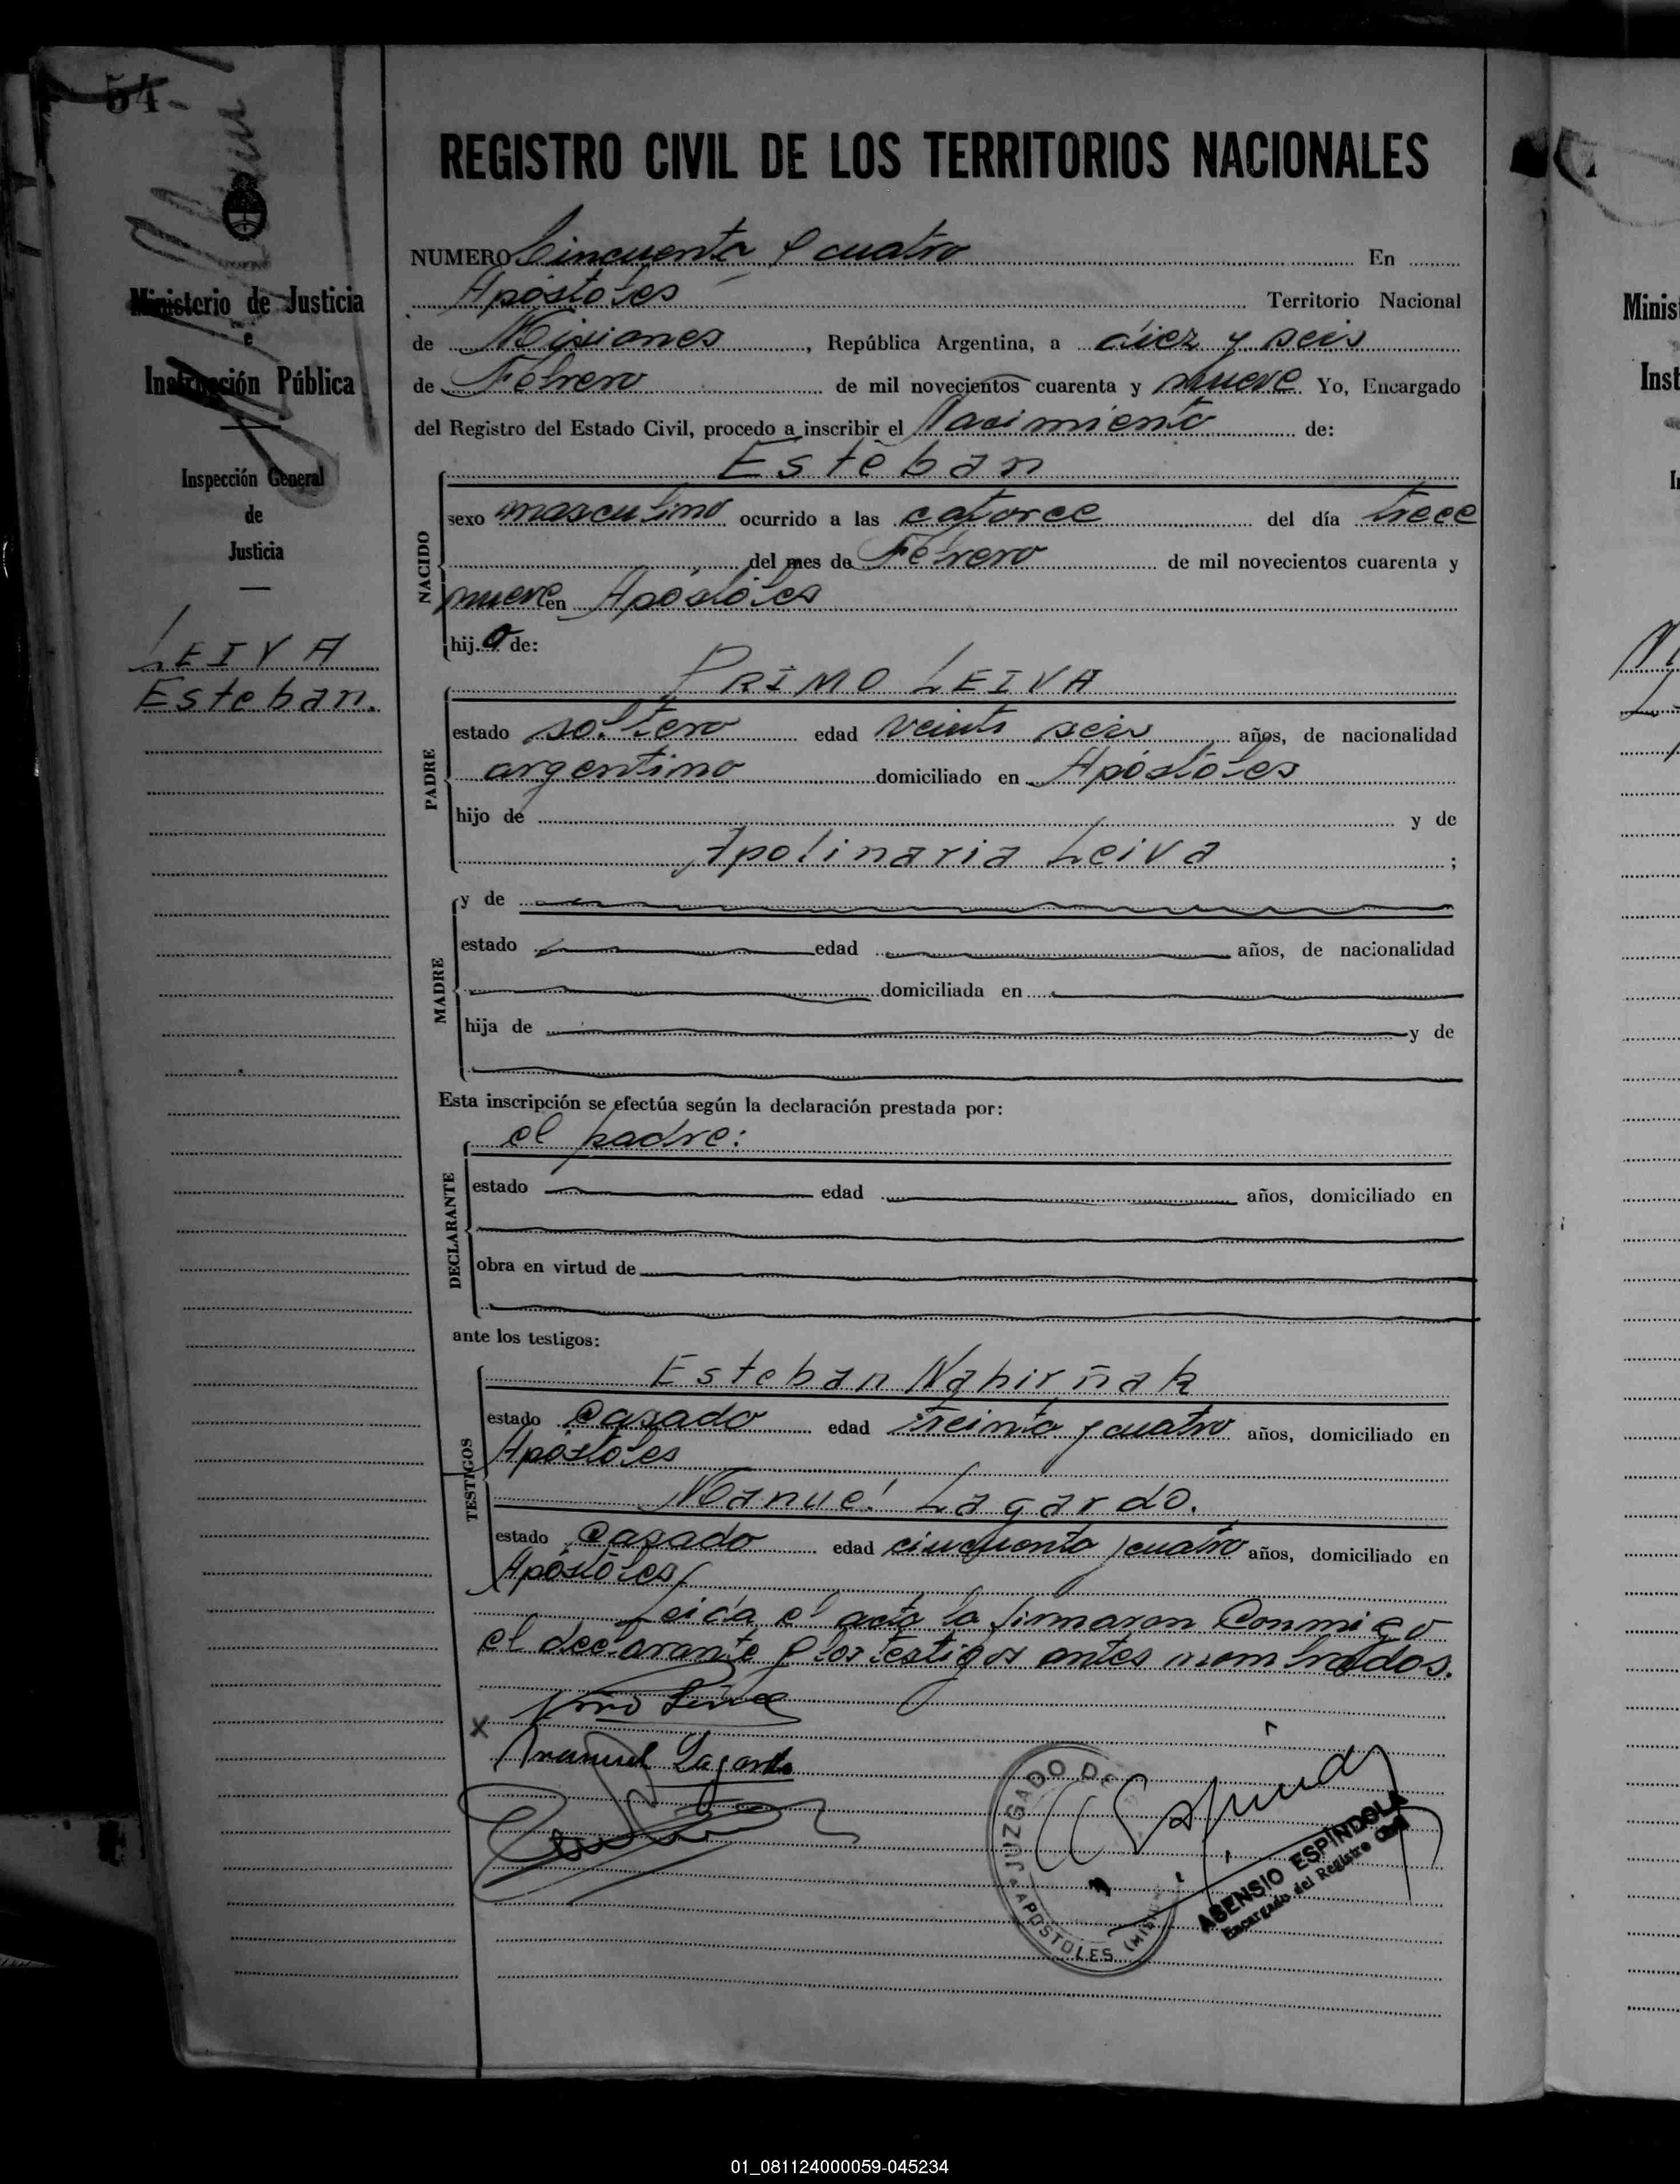 54-
Ministerio de Justicia
e
Instrucción Pública
Inspección General
de
Justicia
LEIVA
Esteban.
REGISTRO CIVIL DE LOS TERRITORIOS NACIONALES
NUMERO Cincuenta y cuatro En
Apóstoles Territorio Nacional
de Misiones, República Argentina, a diez y seis
de Febrero de mil novecientos cuarenta y nueve Yo, Encargado
del Registro del Estado Civil, procedo a inscribir el Nacimiento de:
Esteban
NACIDO
sexo masculino ocurrido a las catorce del día trece
del mes de Febrero de mil novecientos cuarenta y
nueve en Apóstoles
hijo de:
PRIMO LEIVA
PADRE
estado soltero edad veinti seis años, de nacionalidad
argentino domiciliado en Apóstoles
hijo de y de
Apolinaria Leiva ;
MADRE
y de
estado edad años, de nacionalidad
domiciliada en
hija de y de
Esta inscripción se efectúa según la declaración prestada por:
el padre:
DECLARANTE
estado edad años, domiciliado en
obra en virtud de
ante los testigos:
TESTIGOS
Esteban Nahirñak
estado Casado edad treinta y cuatro años, domiciliado en
Apóstoles
Manuel Lagardo.
estado Casado edad cincuenta y cuatro años, domiciliado en
Apóstoles
Leida el acta la firmaron Conmigo
el declarante y los testigos antes nombrados.
X
Manuel Lagardo
JUZGADO DE
APOSTOLES (MISI
ASENSIO ESPÍNDOLA
Encargado del Registro Civil
Minis
Inst
01_081124000059-045234